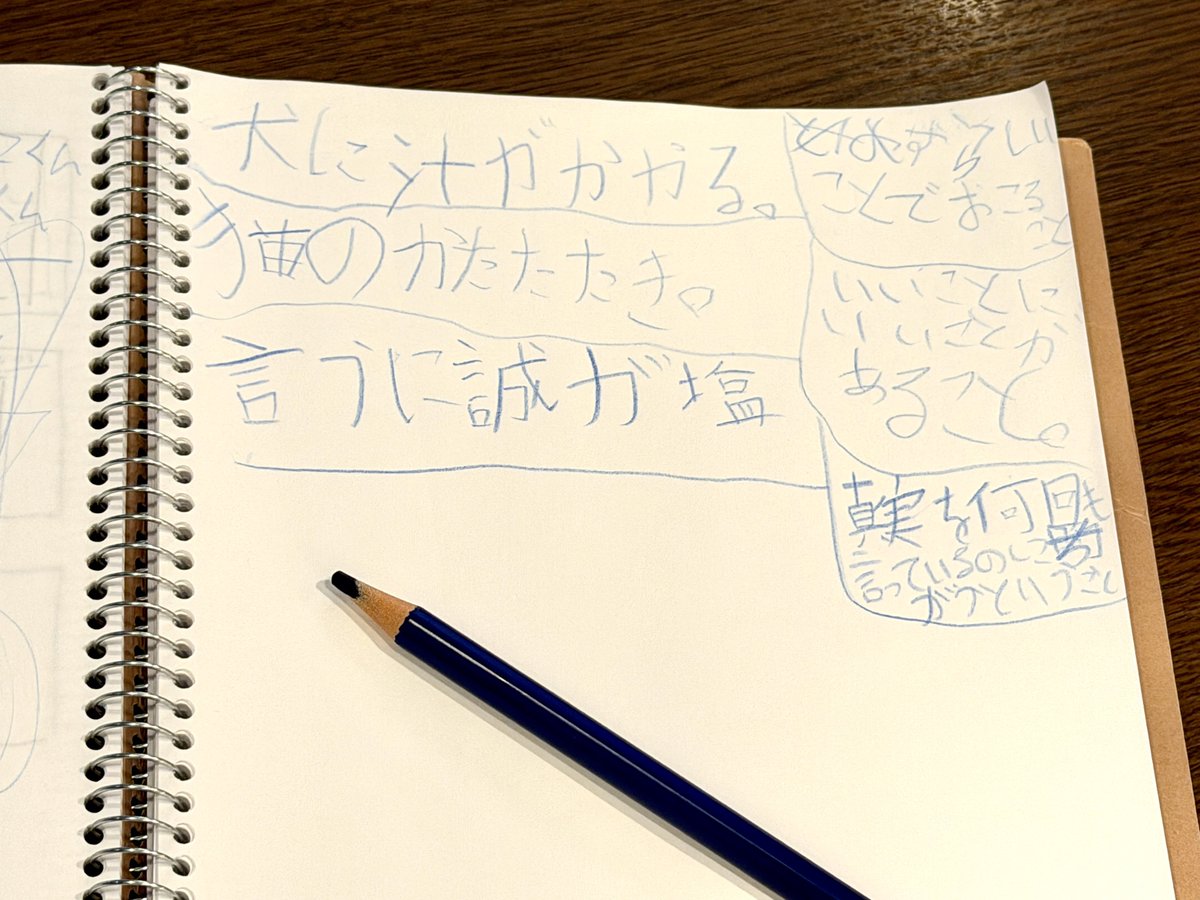 犬に汁がかかる。
らいい
ことでおこる
こと
猫のかたたたき。
いいことに
いいことが
あること。
言うに誠が塩
真実を何回も
言っているのに
がうということ